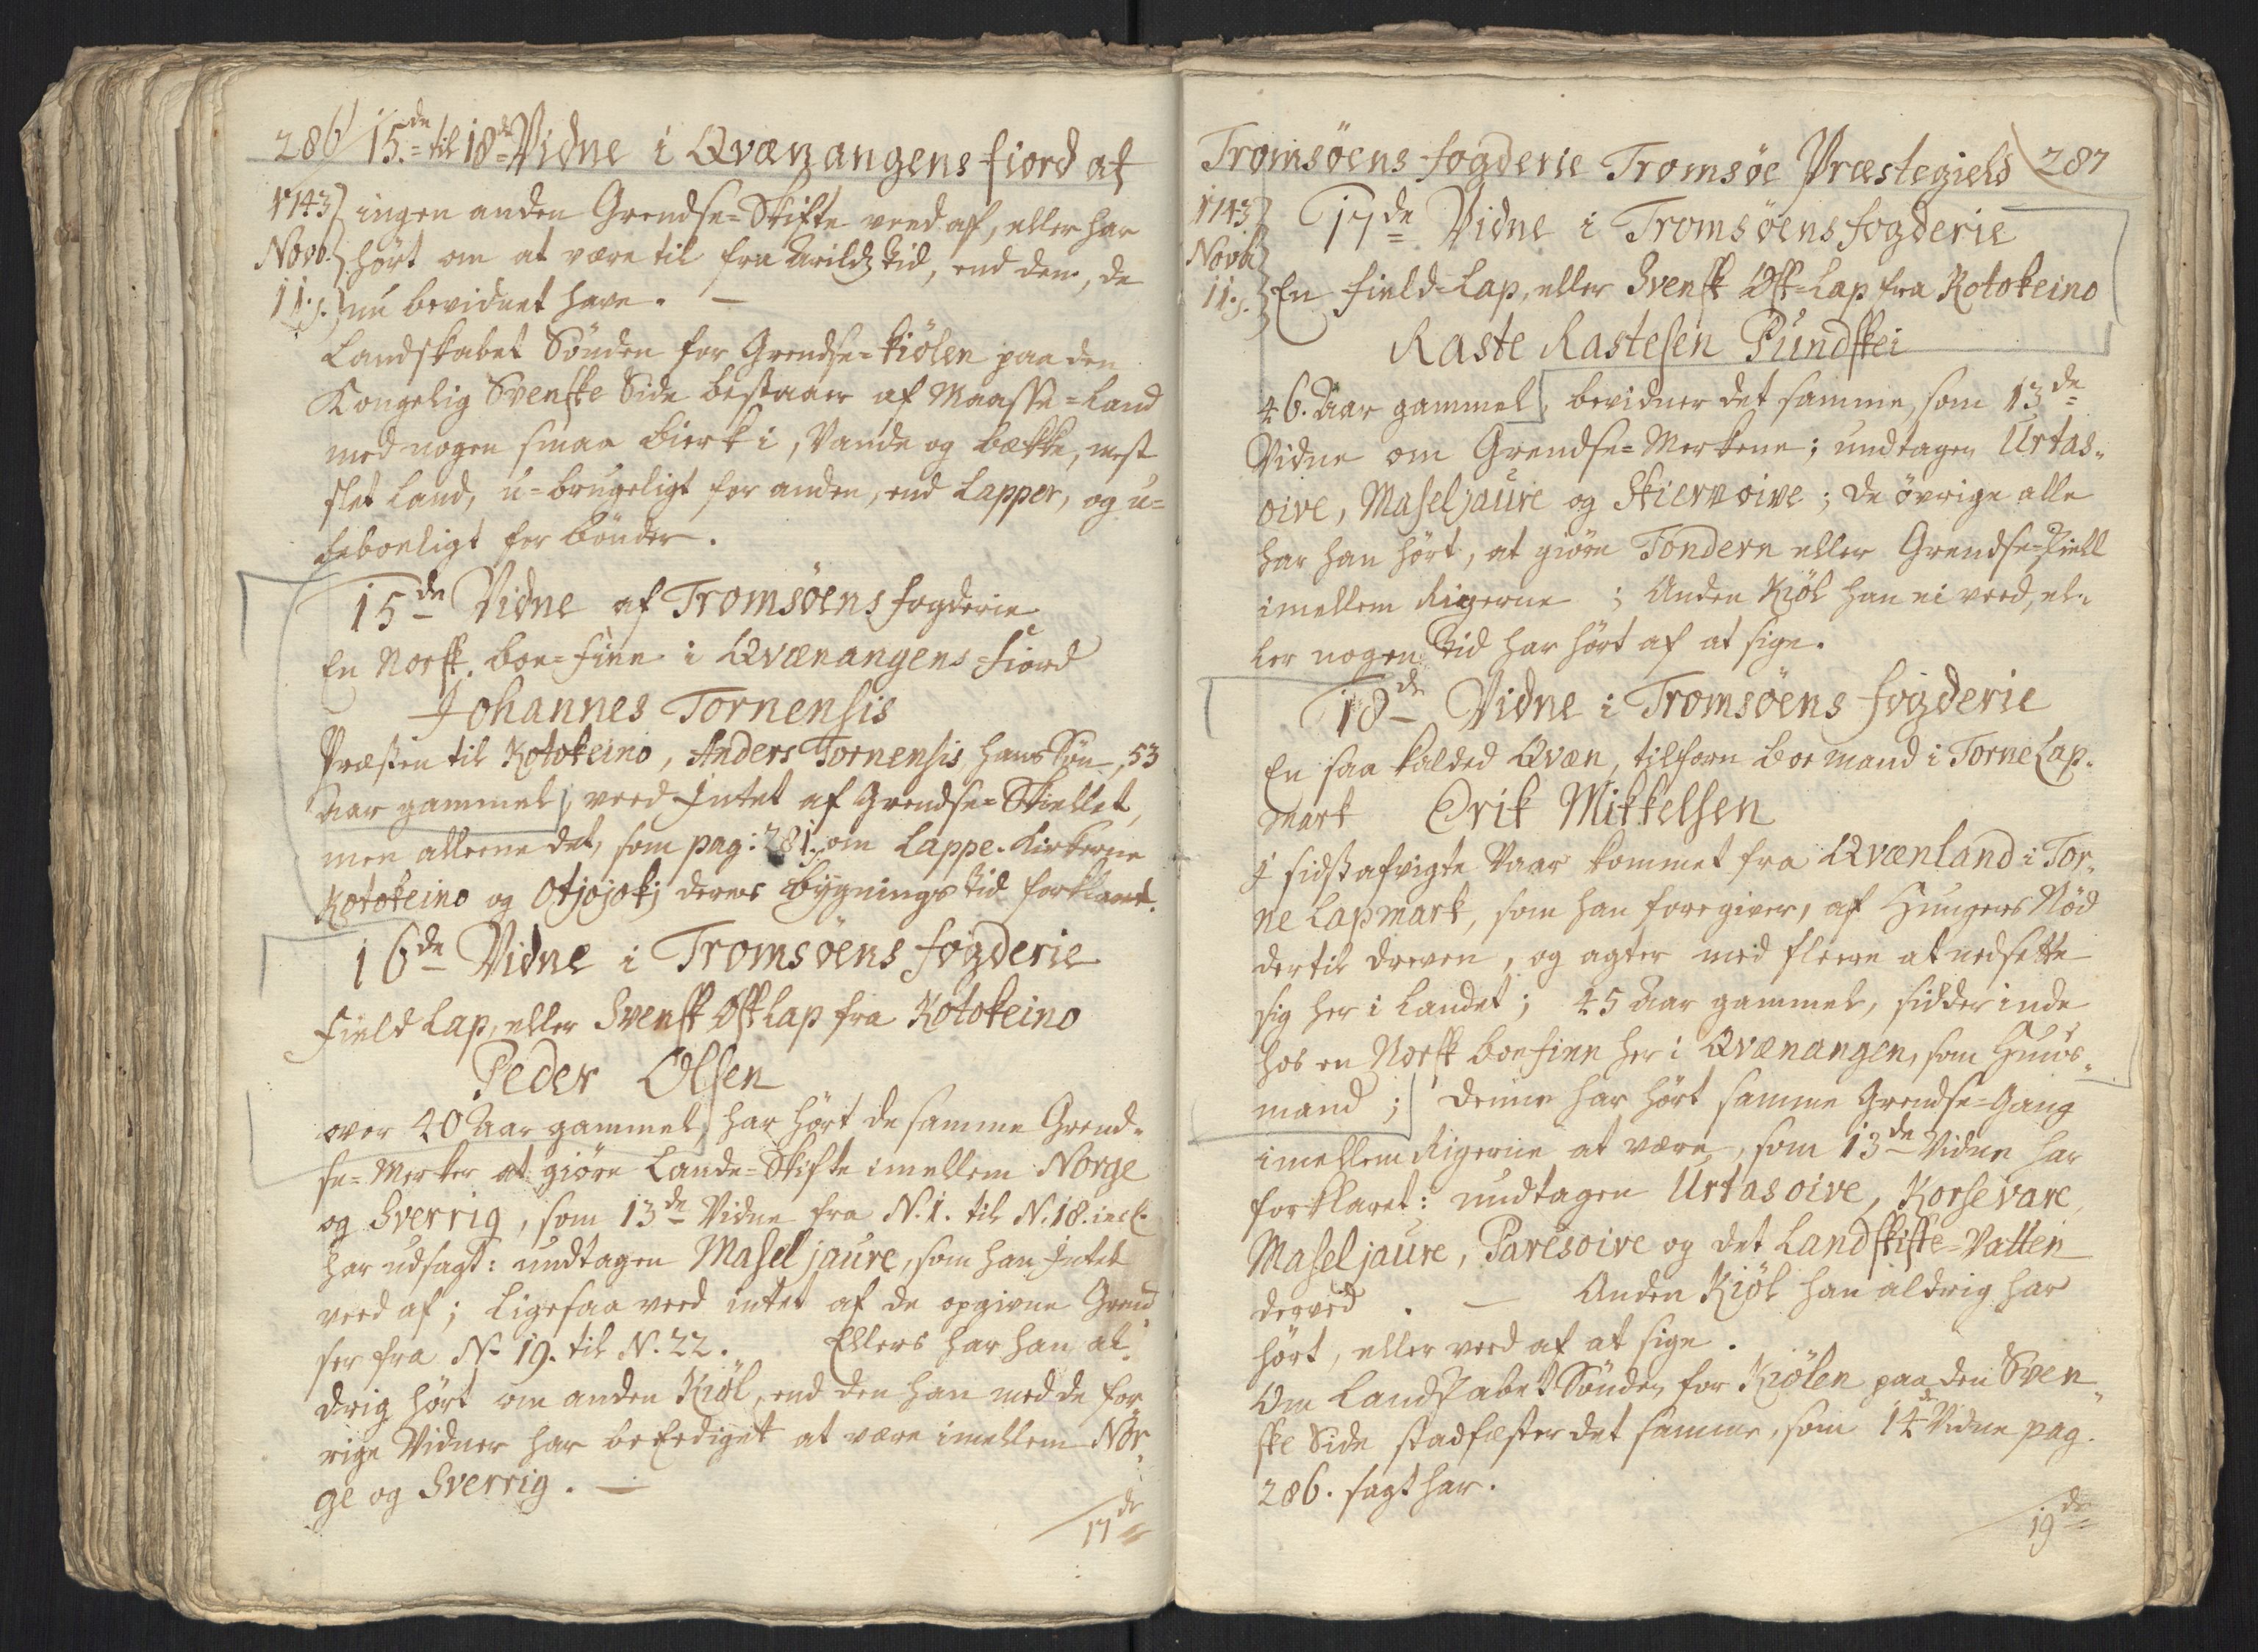 286 15.de til 18de Vidne i Qvænangens fiord af
1743 ingen anden Grendse=Skifte veed af, eller har
Novb. hört om at være til fra Arilds tid, end dem, de
11. nu bevidnet have. —
Landskabet Sönden for Grendse=Kiölen paa den
Kongelig Svenske Side bestaaer af Maasse=Land
med nogen smaa Birk i, Vande og bække, mest
slet Land, u=brugeligt for anden, end Lapper, og u=
beboeligt for bönder.
15de Vidne af Tromsöens fogderie
En Norsk boe=finn i Qvænangens=Fiord
Johannes Tornensis
Præsten til Kotokeino, Anders Tornensis, hans Sön, 53
Aar gammel, veed Intet af Grendse=Skiellet,
men alleene det, som pag: 281. om Lappe-Kirkerne
Kotokeino og Otjojokj deres bygnings tid forklaret.
16de Vidne i Tromsöens fogderie
Field Lap, eller Svensk Ost Lap fra Kotokeino
Peder Olsen
over 40 Aar gammel, har hört de samme Grend-
se=Merker at giöre Lande=Skifte imellem Norge
og Sverrig, som 13de Vidne fra N. 1. til N. 18. incl.
har udsagt: undtagen Maseljaure, som han Intet
veed af; ligesaa veed intet af de opgivne Grend
ser fra N. 19. til N. 22. Ellers har han al-
drig hört om anden Kiöl, end den han med de for-
rige Vidner har beEediget at være imellem Nor-
ge og Sverrig. —
17de
Tromsöens fogderie Tromsöe Præstegield 287
1743 17de Vidne i Tromsöens fogderie
Novb
11. En field=Lap, eller Svensk Ost=Lap fra Kotokeino
Raste Rastesen Pundskei
46. Aar gammel, bevidner det samme, som 13de
Vidne om Grendse=Merkene; undtagen Urtas-
oive, Maseljaure og Skiervoive; de övrige alle
har han hört, at giöre Tondern eller Grendse=Skiell
imellem Rigerne; Anden Kiöl han ei veed, el-
ler nogen tid har hört af at sige.
18de Vidne i Tromsöens fogderie
En saa kalded Qvæn, tilforn boemand i Torne Lap-
mark Erik Mikkelsen
I sidstafvigte Vaar kommet fra Qvænland i Tor-
ne Lapmark, som han foregiver, af Hungers Nöd
dertil dreven, og agter med fleere at nedsette
sig her i Landet; 45 Aar gammel, sidder inde
hos en Norsk boefinn her i Qvænangen, som Huus-
mand; denne har hört samme Grendse=Gang
imellem Rigerne at være, som 13de Vidne har
forklaret: undtagen Urtasoive, Korsevare,
Maseljaure, Paresoive og det Landskifte=Vatten
derved. — Anden Kiöl han aldrig har
hört, eller veed af at sige.
Om Landskabet Sönden for Kiölen paa den Sven-
ske Side stadfæster det samme, som 14de Vidne pag.
286. sagt har.
19de